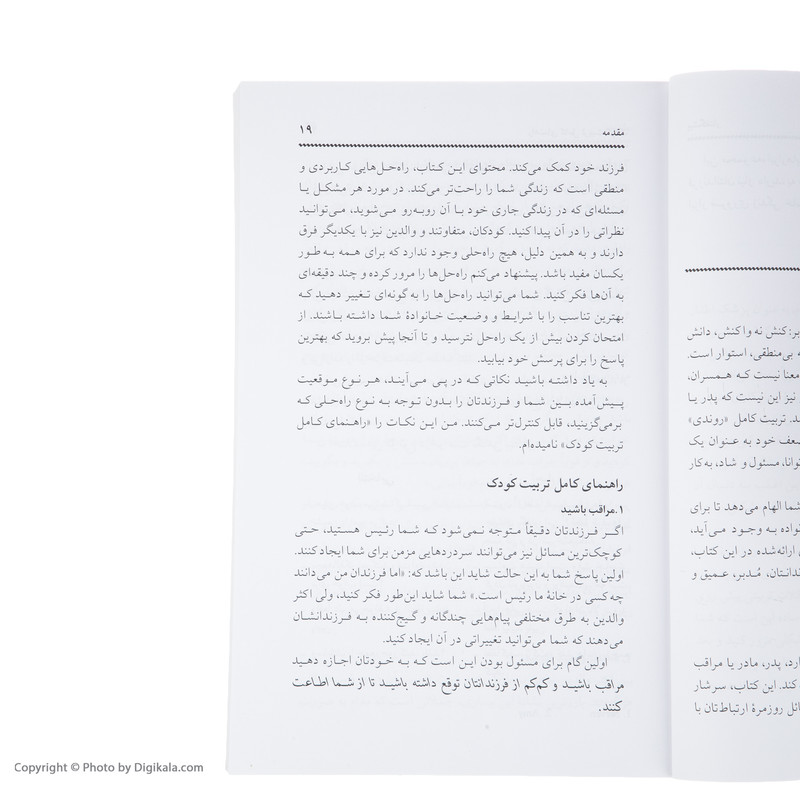 بر: کنش نه واکنش، دانش
ه بی‌منطقی، استوار است.
معنا نیست که همسران،
نیز این نیست که پدر یا
د. تربیت کامل «روندی»
ضعف خود به عنوان یک
توانا، مسئول و شاد، به‌کار
شما الهام می‌دهد تا برای
نواده به وجود می‌آید،
ی ارائه‌شده در این کتاب،
ندانتان، مُدبر، عمیق و
ارد، پدر، مادر یا مراقب
کند. این کتاب، سرشار
ائل روزمرهٔ ارتباط‌تان با
مقدمه ۱۹
فرزند خود کمک می‌کند. محتوای این کتاب، راه‌حل‌هایی کاربردی و
منطقی است که زندگی شما را راحت‌تر می‌کند. در مورد هر مشکل یا
مسئله‌ای که در زندگی جاری خود با آن روبه‌رو می‌شوید، می‌توانید
نظراتی را در آن پیدا کنید. کودکان، متفاوتند و والدین نیز با یکدیگر فرق
دارند و به همین دلیل، هیچ راه‌حلی وجود ندارد که برای همه به طور
یکسان مفید باشد. پیشنهاد می‌کنم راه‌حل‌ها را مرور کرده و چند دقیقه‌ای
به آن‌ها فکر کنید. شما می‌توانید راه‌حل‌ها را به گونه‌ای تغییر دهید که
بهترین تناسب را با شرایط و وضعیت خانوادهٔ شما داشته باشند. از
امتحان کردن بیش از یک راه‌حل نترسید و تا آنجا پیش بروید که بهترین
پاسخ را برای پرسش خود بیابید.
به یاد داشته باشید نکاتی که در پی می‌آیند، هر نوع موقعیت
پیش‌آمده بین شما و فرزندتان را بدون توجه به نوع راه‌حلی که
برمی‌گزینید، قابل کنترل‌تر می‌کنند. من این نکات را «راهنمای کامل
تربیت کودک» نامیده‌ام.
راهنمای کامل تربیت کودک
۱.مراقب باشید
اگر فرزندتان دقیقاً متوجه نمی‌شود که شما رئیس هستید، حتی
کوچک‌ترین مسائل نیز می‌توانند سردردهایی مزمن برای شما ایجاد کنند.
اولین پاسخ شما به این حالت شاید این باشد که: «اما فرزندان من می‌دانند
چه‌کسی در خانهٔ ما رئیس است.» شما شاید این‌طور فکر کنید، ولی اکثر
والدین به طرق مختلفی پیام‌هایی چندگانه و گیج‌کننده به فرزندانشان
می‌دهند که شما می‌توانید تغییراتی در آن ایجاد کنید.
اولین گام برای مسئول بودن این است که به خودتان اجازه دهید
مراقب باشید و کم‌کم از فرزندانتان توقع داشته باشید تا از شما اطاعت
کنند.
Copyright © Photo by Digikala.com